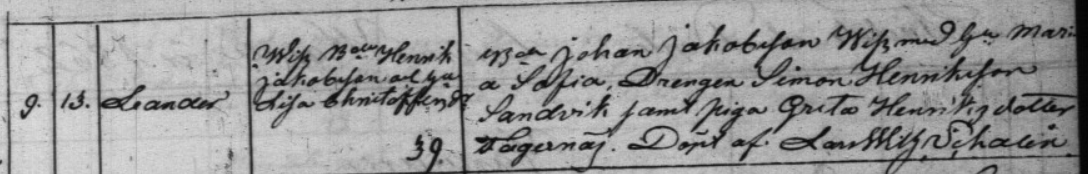 9. 13. Leander
Wiß Bdn Henrik
Jakobsson och hu
Lisa Christoffersdr
39.
Bdn Johan Jakobsson Wiß med hu Mari
a Sofia, Drengen Simon Henriksson
Sandvik samt piga Greta Henriksdotter
Döpt af